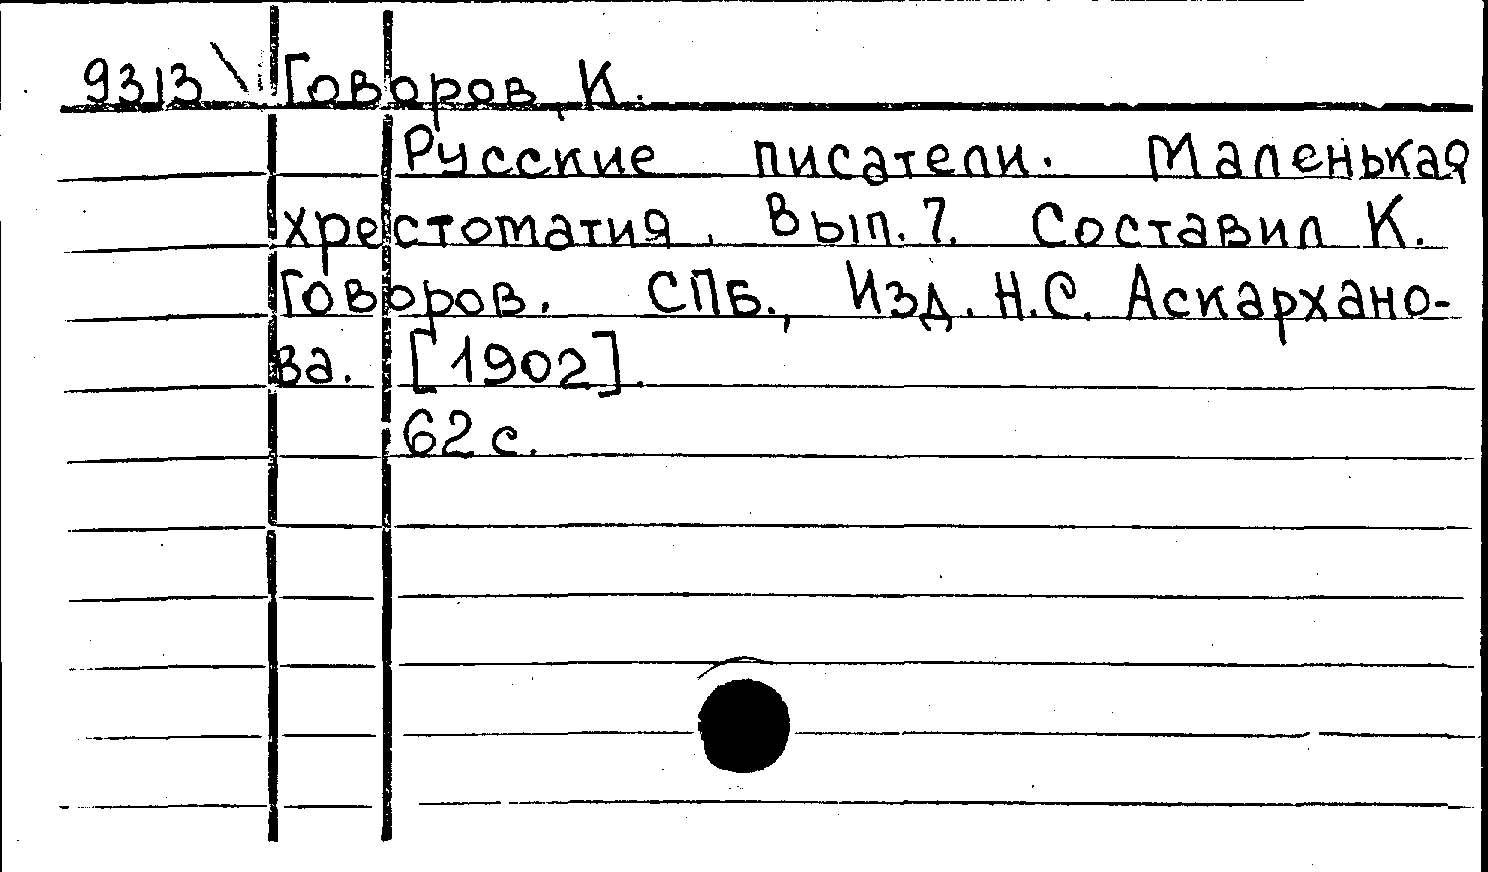 9313 \ Говоров, К.
Русские писатели. Маленькая
хрестоматия. Вып. 7. Составил К.
Говоров. СПБ., Изд. Н.С. Аскархано-
ва. [1902].
62 с.